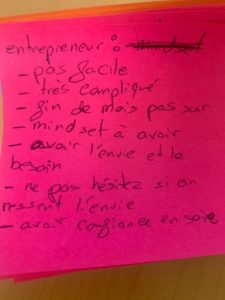 entrepreneur :
- pas facile
- très compliqué
- fin de mois pas sur
- mindset à avoir
- avoir l'envie et le
besoin
- ne pas hésitez si on
ressent l'envie
- avoir confiance en soie